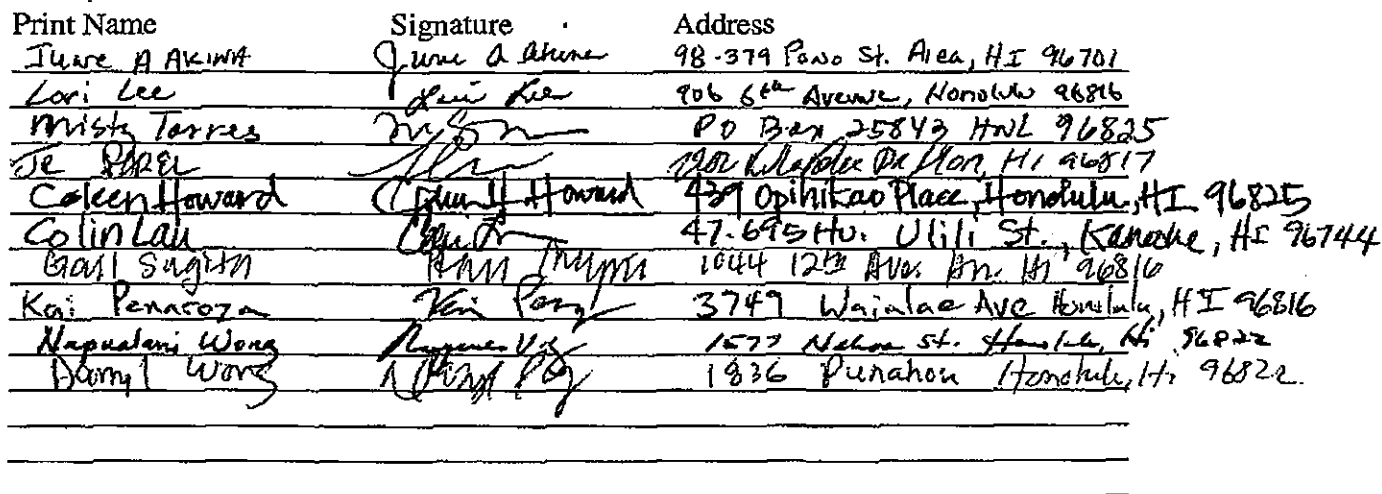 Print Name Signature Address
June A Akina June A Akina 98-379 Pono St. Aiea, HI 96701
Lori Lee Lori Lee 906 6th Avenue, Honolulu 96816
Misty Torres PO Box 25843 HNL 96825
Dr Hon, Hi 96817
Coleen Howard H. Howard 439 Opihikao Place, Honolulu, HI 96825
Colin Lau 47-695 Hui Ulili St., Kaneohe, HI 96744
Gail Sugita 1044 12th Ave. Hn. Hi 96816
Kai Penaroza Kai 3749 Waialae Ave Honolulu, HI 96816
Napualani Wong 1577 St. Honolulu, Hi 96822
Darryl Wong 1836 Punahou Honolulu, Hi 96822